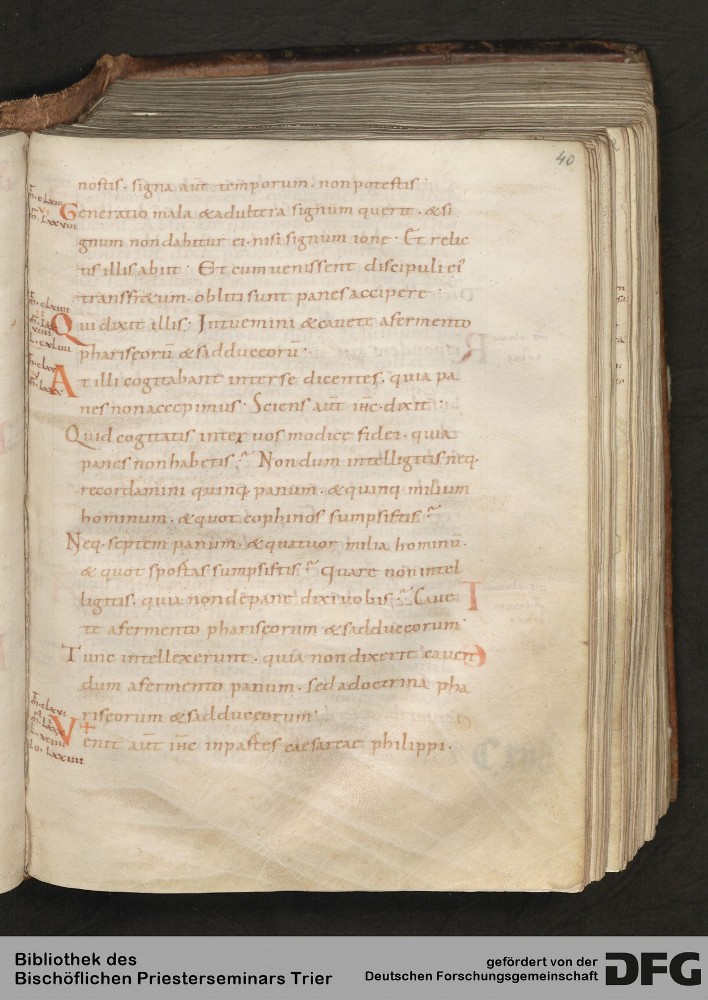 40
nostis · signa aūt temporum · non potestis ·
Generatio mala & adultera signum querit · & si
gnum non dabitur ei · nisi signum ione · Et relic
tis illis abiit · Et cum venissent discipuli ei'
trans fr&um · obliti sunt panes accipere ·
Qui dixit illis · Intuemini & cavete a fermento
phariseorū & sadduceorū ·
At illi cogitabant inter se dicentes · quia pa
nes non accepimus · Sciens aūt ih̄c · dixit ·
Quid cogitatis inter vos modice fidei · quia
panes non habetis · Nondum intelligitis neq·
recordamini quinq· panum · & quinq milium
hominum · & quot cophinos sumpsistis ·
Neq· septem panum · & quatuor milia hominū ·
& quot sportas sumpsistis · Quare non intel
ligitis · quia non de pane dixi vobis · Cave
te a fermento phariseorum & sadduceorum ·
Tunc intellexerunt · quia non dixerit caven
dum a fermento panum · sed a doctrina pha
riseorum & sadduceorum ·
Venit aūt ih̄c in partes caesareae philippi ·
Bibliothek des
Bischöflichen Priesterseminars Trier
gefördert von der
Deutschen Forschungsgemeinschaft
DFG